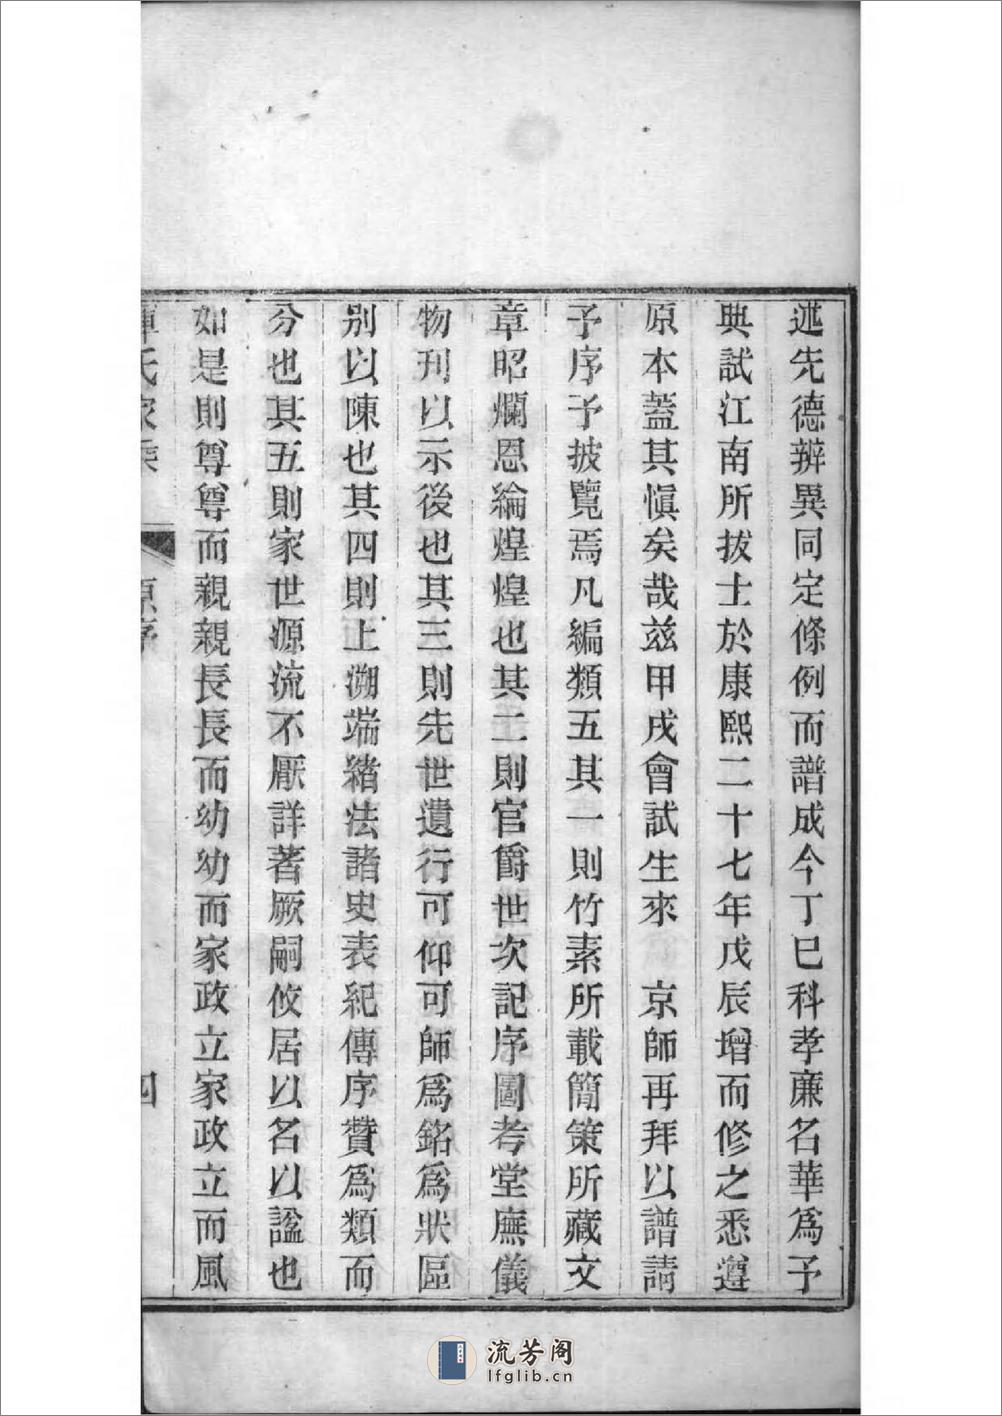 述先德辨異同定條例而譜成今丁巳科孝廉名華爲予
典試江南所拔士於康熙二十七年戊辰增而修之悉遵
原本蓋其愼矣哉茲甲戌會試生來　京師再拜以譜請
予序予披覽焉凡編類五其一則竹素所載簡策所藏文
章昭爛恩綸煌煌也其二則官爵世次記序圖考堂廡儀
物刊以示後也其三則先世遺行可仰可師爲銘爲狀區
别以陳也其四則上溯端緒法諸史表紀傳序贊爲類而
分也其五則家世源流不厭詳著厥嗣攸居以名以諡也
如是則尊尊而親親長長而幼幼而家政立家政立而風
氏家乘
原序
四
流芳阁
lfglib.cn